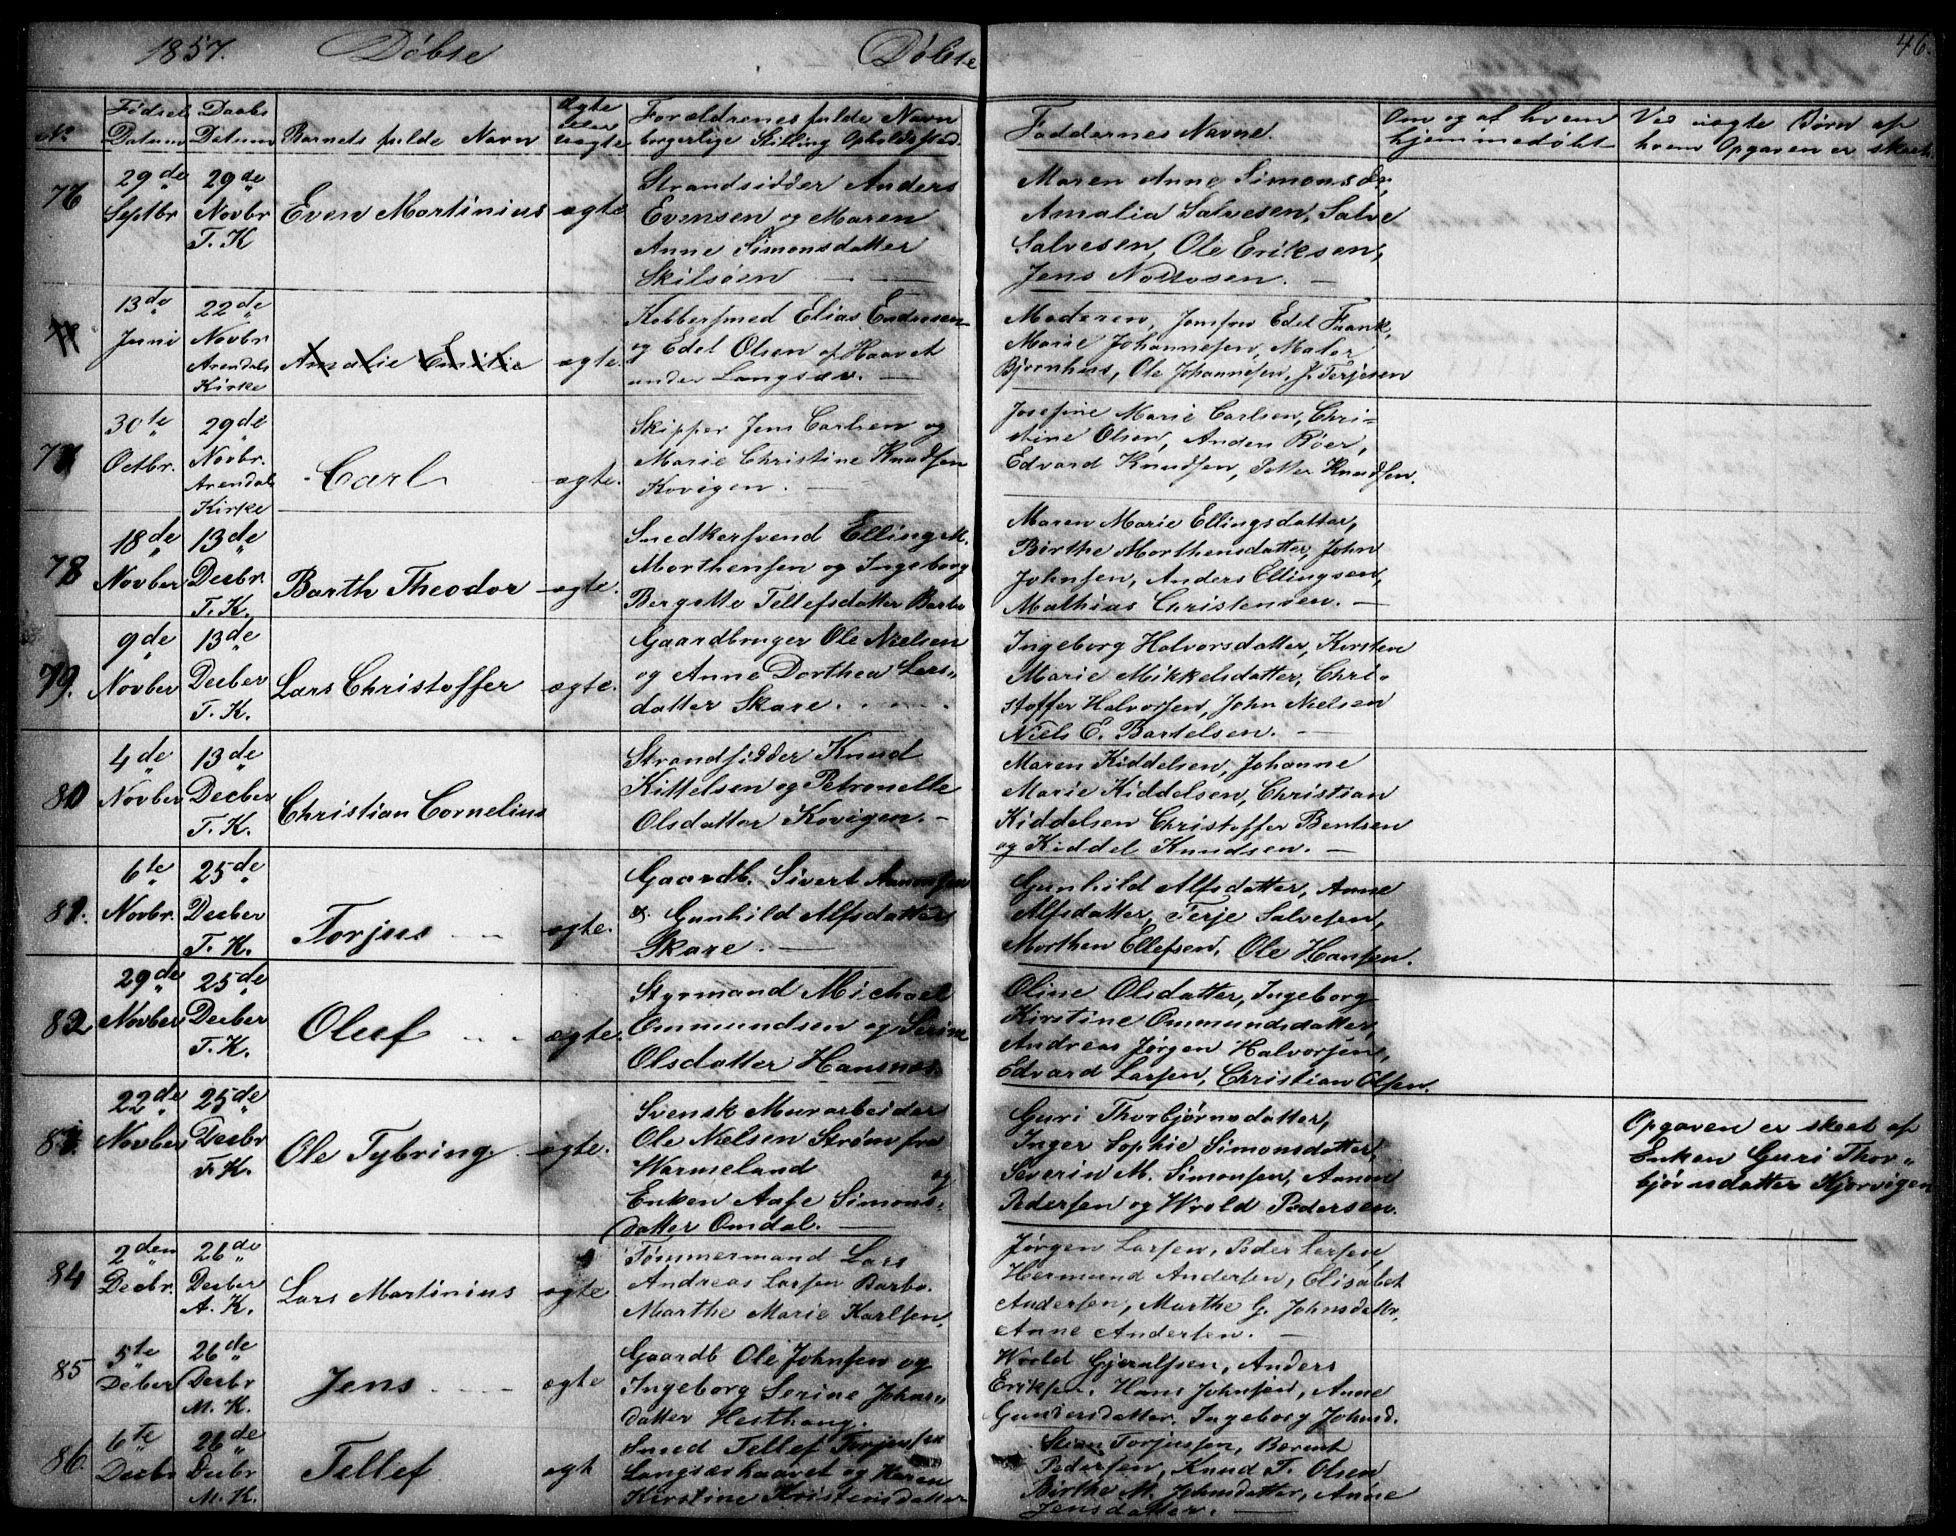 1857. Döbte Döbte 46.
No Fødsel Datum Daabs Datum Barnets fulde Navn ægte eller uægte Forældrenes fulde Navn borgerlige Stilling Opholdssted. Faddernes Navne. Om og af hvem hjemmedøbt Ved uægte Børn af hvem Opgaven er skeet
76 29de Septbr 29de Novbr T. K Even Martinius ægte
Strandsidder Anders
Evensen og Maren
Anne Simonsdatter
Skilsöen
Maren Anne Simonsdr,
Amalia Salvesen, Salve
Salvesen, Ole Eriksen,
Jens
13de Juni 22de Novbr Arendals Kirke Amalie Emilie ægte.
Kobbersmed Elias Endresen
og Edel Olsen af Haavet
under Langsæv.
Moderen, Jomfru Edel Frank,
Marie Johannesen, Maler
Bjørnhus, Ole Johannesen, J. Terjesen
77 30te Octbr. 29de Novbr. Arendals Kirke Carl ægte.
Skipper Jens Carlsen og
Marie Christine Knudsen
Kovigen.
Josefine Marie Carlsen, Chri-
stine Olsen, Anders Röer,
Edvard Knudsen, Petter Knudsen.
78 18de Novber 13de Decbr. T. K. Barth Theodor ægte.
Snedkersvend Elling M.
Morthensen og Ingeborg
Bergette Tellefsdatter Barbo
Maren Marie Ellingsdatter,
Birthe Morthensdatter, John
Johnsen, Anders Ellingsen,
Mathias Christensen.
79. 9de Novber 13de Decber T. K. Lars Christoffer ægte.
Gaardbruger Ole Nielsen
og Anne Dorthea Lars-
datter Skare.
Ingeborg Halvorsdatter, Kirsten
Marie Mikkelsdatter, Chri-
stoffer Halvorsen, John Nielsen
Niels E. Bartelsen.
80 4de Novber 13de Decber T. K. Christian Cornelius
Strandsidder Knud
Kittelsen og Petronelle
Olsdatter Kovigen.
Maren Kiddelsen, Johanne
Marie Kiddelsen, Christian
Kiddelsen Christoffer Bentsen
og Kiddel Knudsen.
81. 6te Novbr. 25de Decber T. K. Torjus ægte.
Gaardb. Sivert Aanonsen
& Gunhild Alfsdatter
Skare.
Gunhild Alfsdatter, Anne
Alfsdatter, Terje Salvesen,
Morthen Ellefsen, Ole Hansen.
82 29de Novber 25de Decber T. K. Oluf ægte.
Styrmand Michael
Ommundsen og Serine
Olsdatter Hansnæs.
Oline Olsdatter, Ingeborg
Kirstine Ommundsdatter,
Andreas Jørgen Halvorsen,
Edvard Larsen, Christian Olsen.
83. 22de Novber 25de Decbr T. K. Ole Tybring ægte.
Svensk Murarbeider
Ole Nielsen Strøm fra
Warmeland og
Enken Aase Simons-
datter Omdal.
Guri Thorbjörnsdatter,
Inger Sophie Simonsdatter,
Severin M. Simonsen, Aanon
Pedersen og Wrold Pedersen.
Opgaven er skeet af
Enken Guri Thor-
bjørnsdatter Kjorvigen
84 2den Decbr. 26de Decber A. K. Lars Martinius ægte
Tømmermand Lars
Andreas Larsen Barbo.
Marthe Marie Karlsen.
Jørgen Larsen, Peder Larsen
Hermund Andersen, Elisabet
Andersen, Marthe G. Johnsdatter,
Anne Andersen.
85 5te Deber 26de Decbr M. K. Jens ægte
Gaardb Ole Johnsen og
Ingeborg Serine Johans-
datter Hesthaug.
Wrold Gjerulfsen, Anders
Eriksen, Hans Johnsen, Anne
Gundersdatter. Ingeborg Johnsd.
86. 6te Decbr 26de Decbr M. K. Tellef ægt
Smed Tellef Torjussen
Langsæhaavet og Karen
Kirstine Kristensdatter
Torjussen, Berent
Pedersen, Knud T. Olsen
Birthe M. Johnsdatter, Anne
Jensdatter.